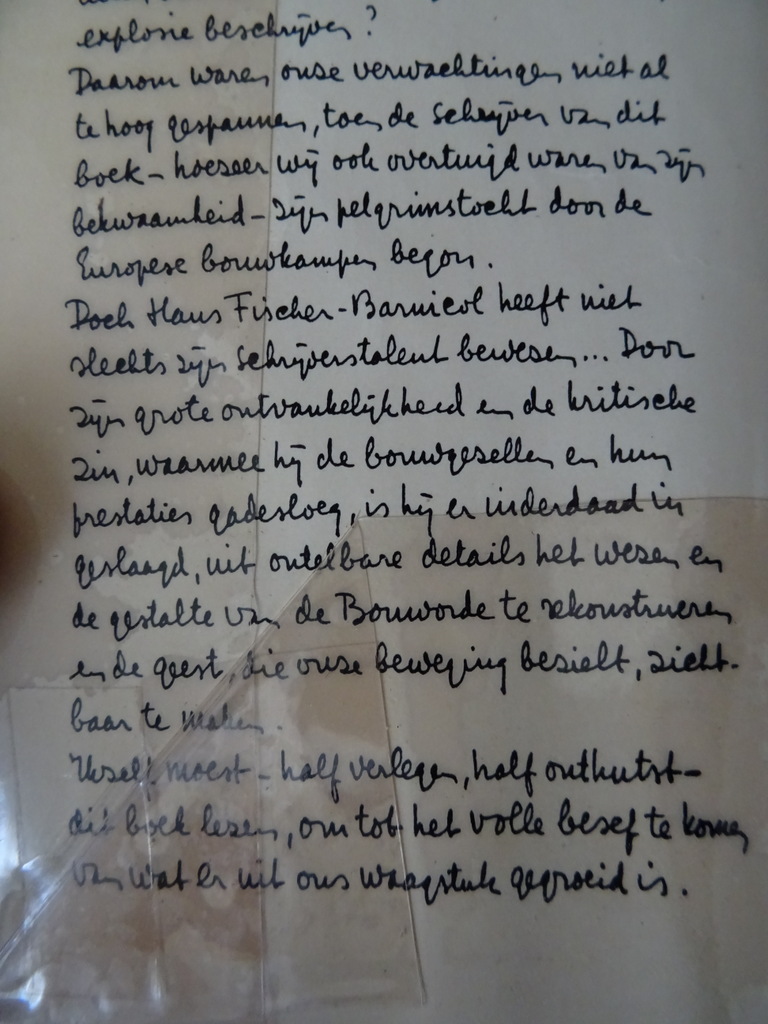 explosie beschrijven?
Daarom waren onze verwachtingen niet al
te hoog gespannen, toen de schrijver van dit
boek - hoezeer wij ook overtuigd waren van zijn
bekwaamheid - zijn pelgrimstocht door de
Europese bouwkampen begon.
Doch Hans Fischer-Barnicol heeft niet
slechts zijn schrijverstalent bewezen... Door
zijn grote ontvankelijkheid en de kritische
zin, waarmee hij de bouwgezellen en hun
prestaties gadesloeg, is hij er inderdaad in
geslaagd, uit ontelbare details het wezen en
de gestalte van de Bouworde te rekonstrueren
en de geest, die onze beweging bezielt, zicht-
baar te maken.
Ikzelf moest - half verlegen, half onthutst -
dit boek lezen, om tot het volle besef te komen
van wat er uit ons waagstuk gegroeid is.